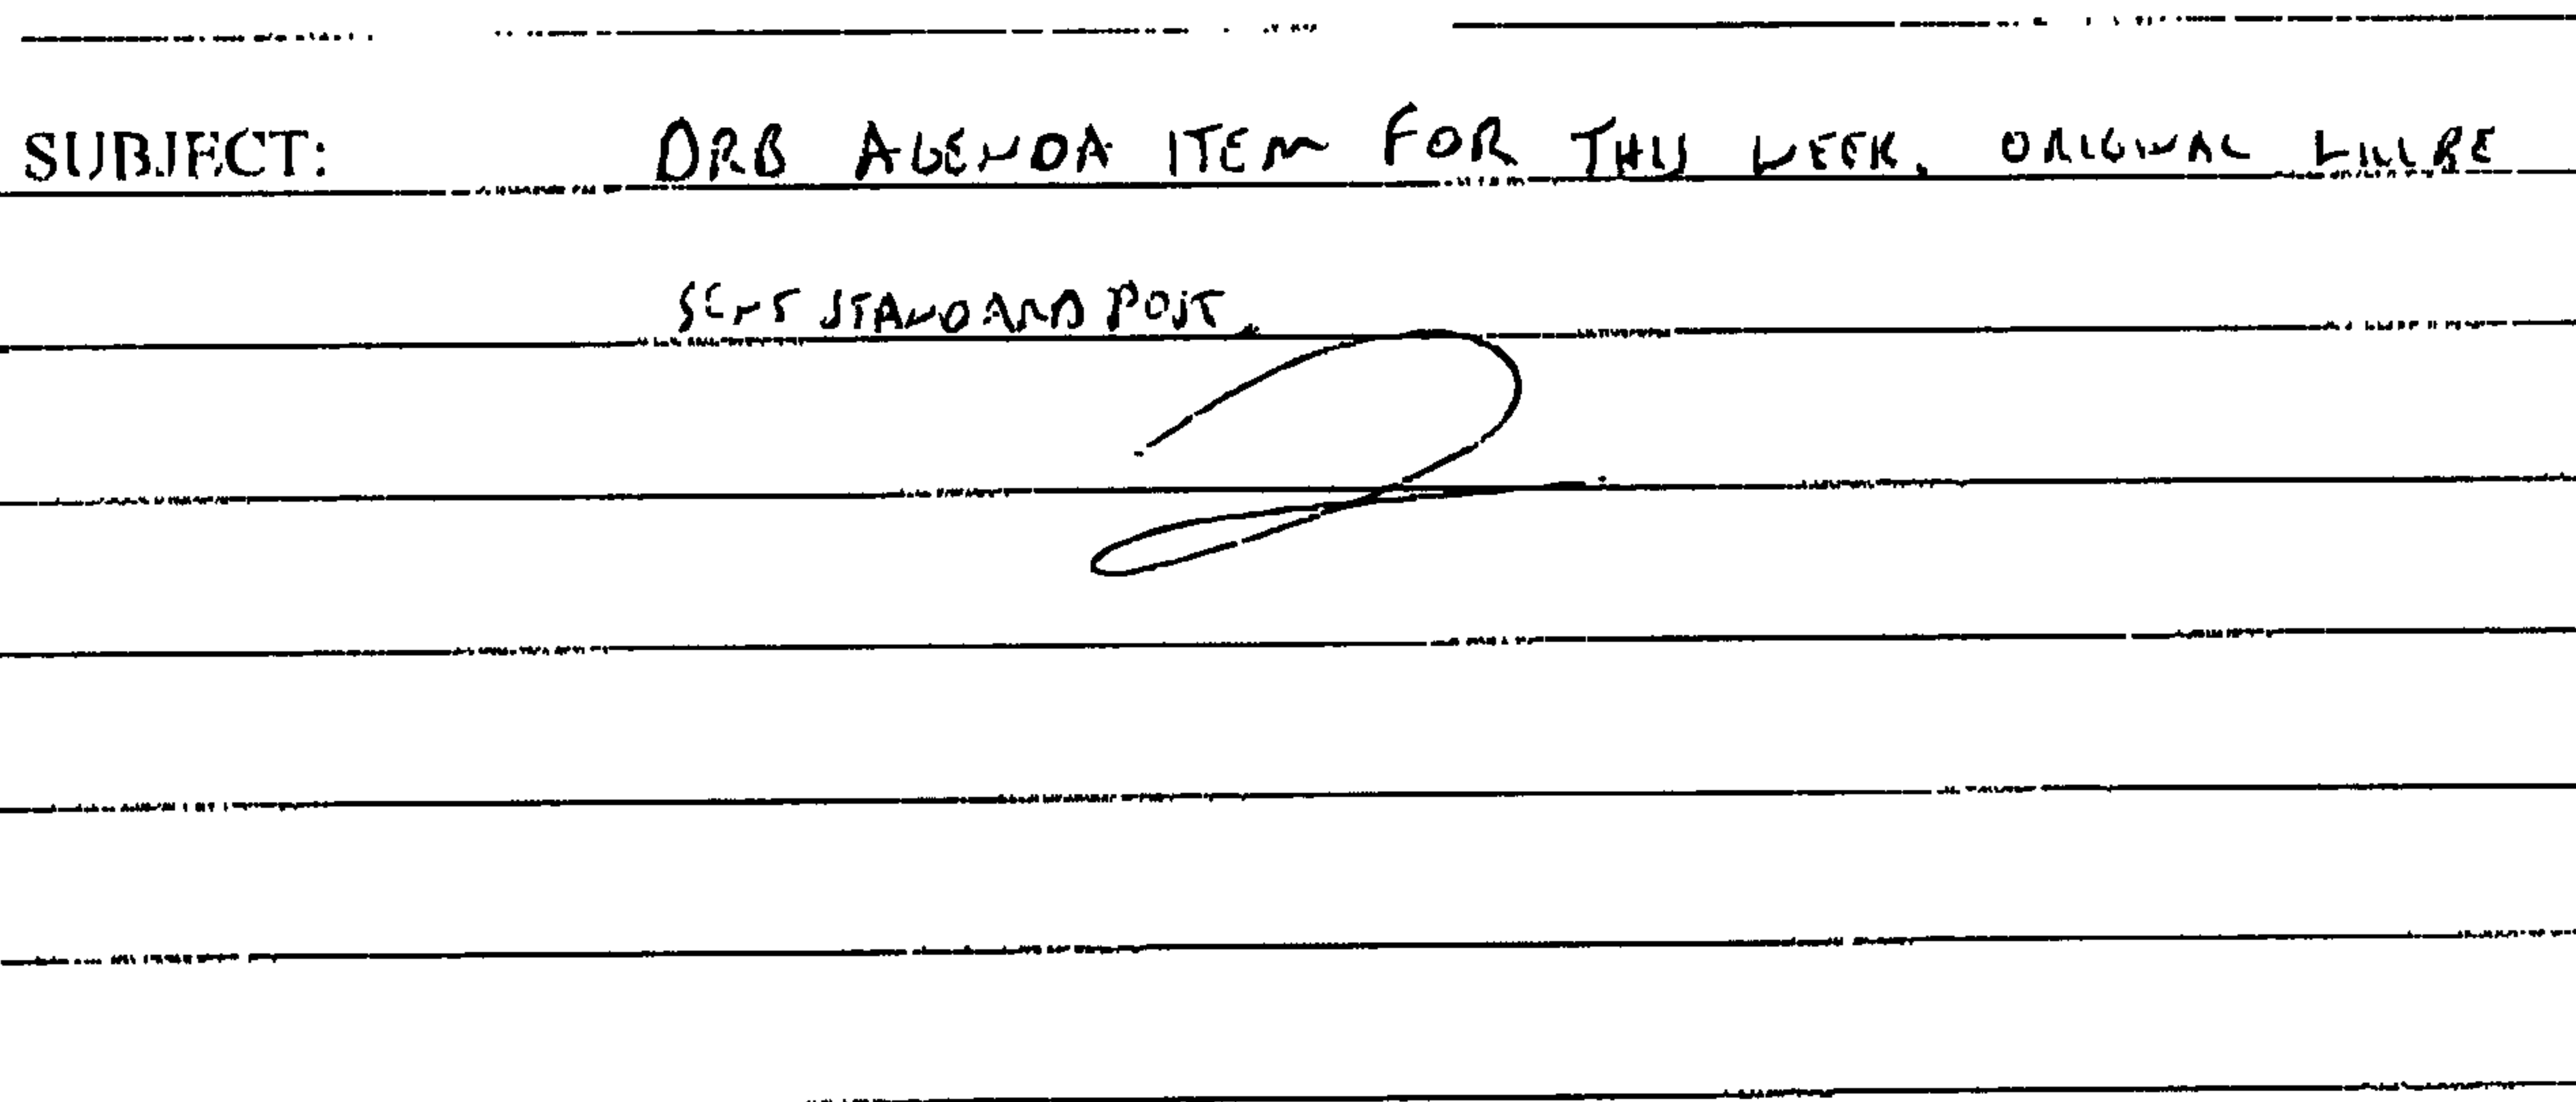 SUBJECT: DRB AGENDA ITEM FOR THIS WEEK. ORIGINAL WILL BE
SENT STANDARD POST.